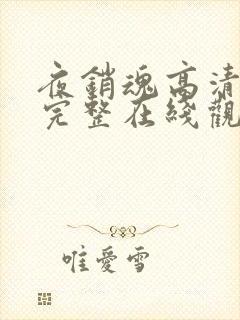 夜銷魂高清
完整在綫觀
唯愛雪